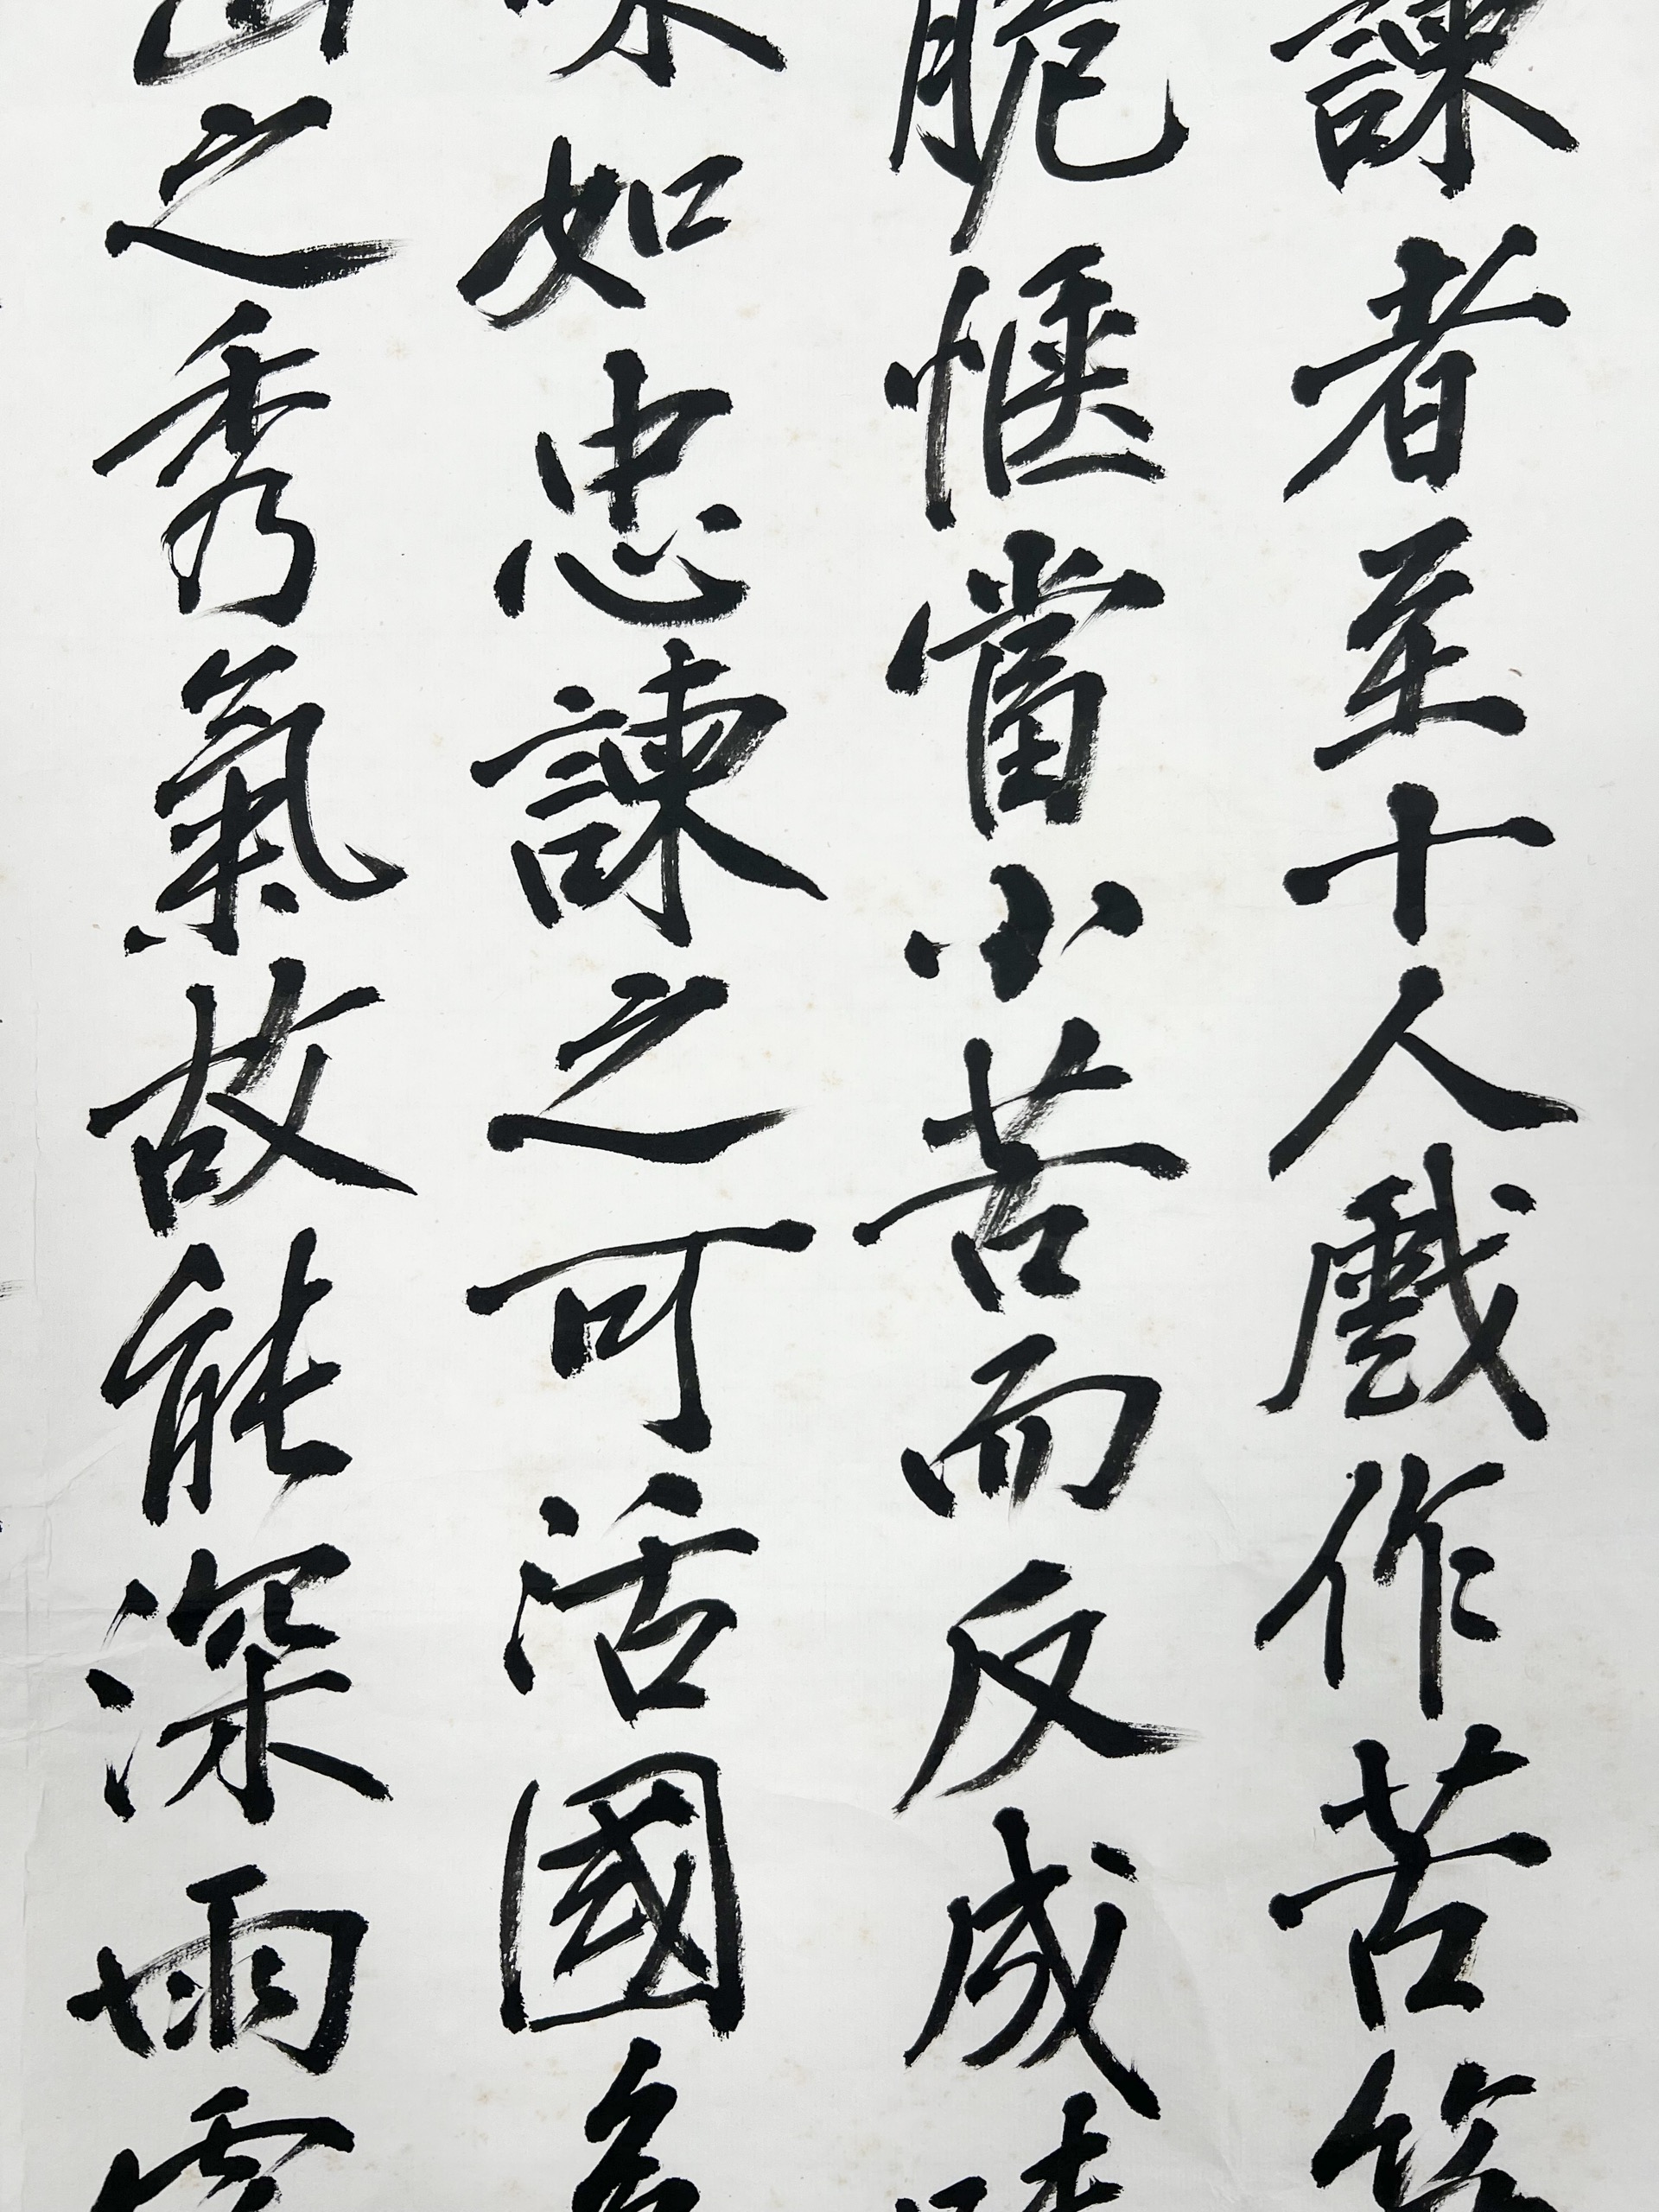 諫者至十人戲作苦笋
脆惬當小苦而反成味
味如忠諫之可活國多
之秀氣故能深雨露